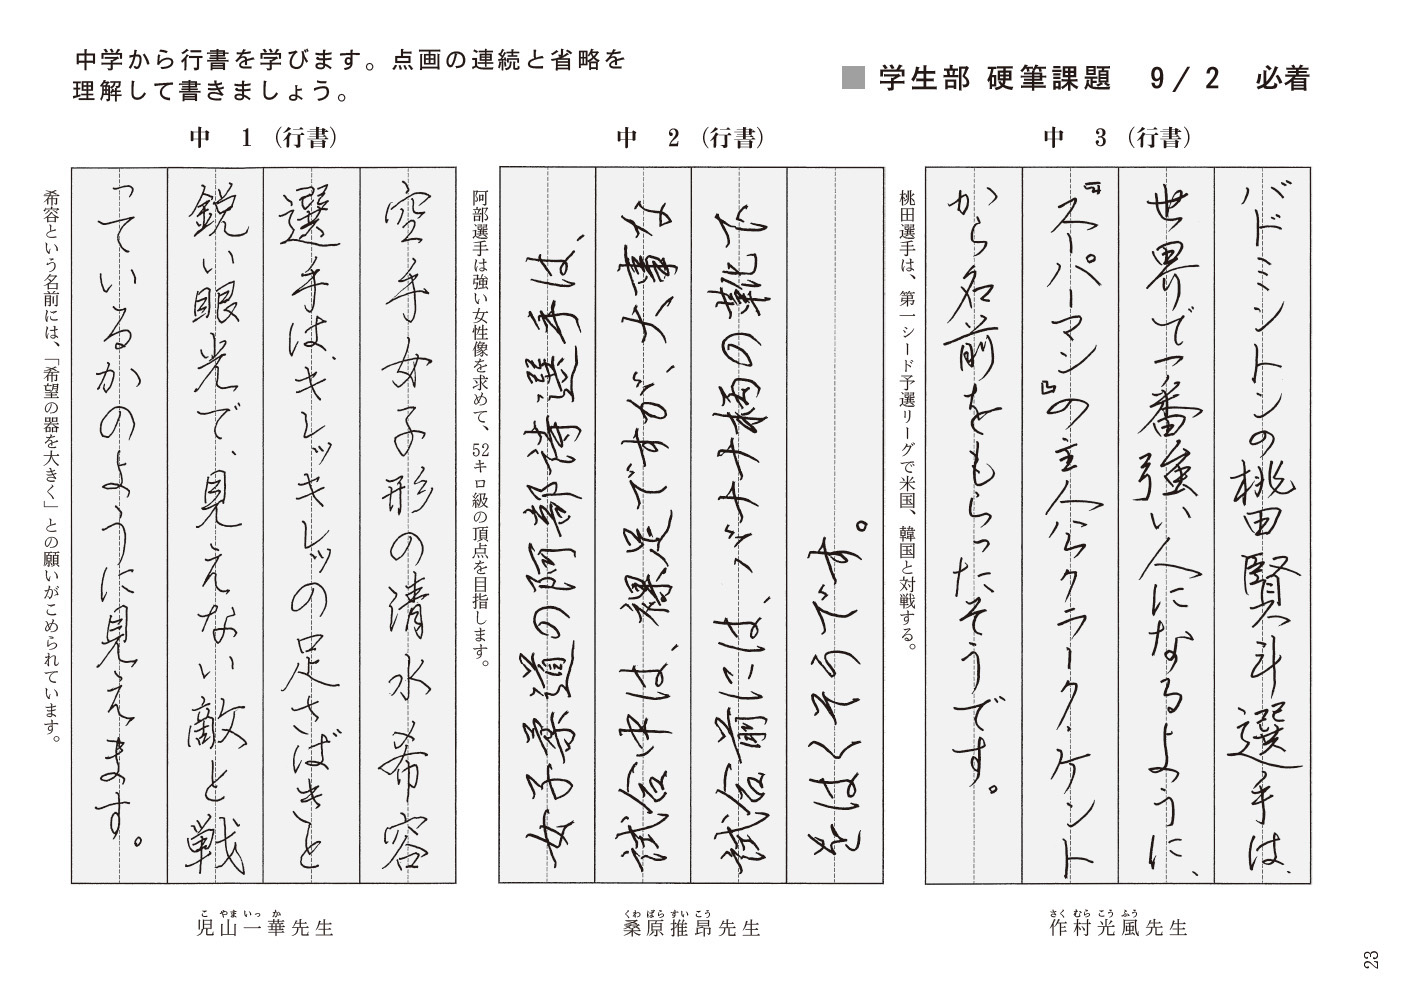 中学から行書を学びます。点画の連続と省略を
理解して書きましょう。
■ 学生部 硬筆課題 9/2 必着
中 1 (行書)
空手女子形の清水希容
選手は、キレッキレッの足さばきと
鋭い眼光で、見えない敵と戦
っているかのように見えます。
希容という名前には、「希望の器を大きく」との願いがこめられています。
こ やま いっ か
児山一華先生
中 2 (行書)
女子柔道の阿部詩選手は、
試合中は、裸足ですが、大事な
試合前には、バナナ柄の靴下
をはくそうです。
阿部選手は強い女性像を求めて、52キロ級の頂点を目指します。
くわ ばら すい こう
桑原推昂先生
中 3 (行書)
バドミントンの桃田賢斗選手は、
世界で一番強い人になるように、
『スーパーマン』の主人公クラーク・ケント
から名前をもらったそうです。
桃田選手は、第一シード予選リーグで米国、韓国と対戦する。
さく むら こう ふう
作村光風先生
23